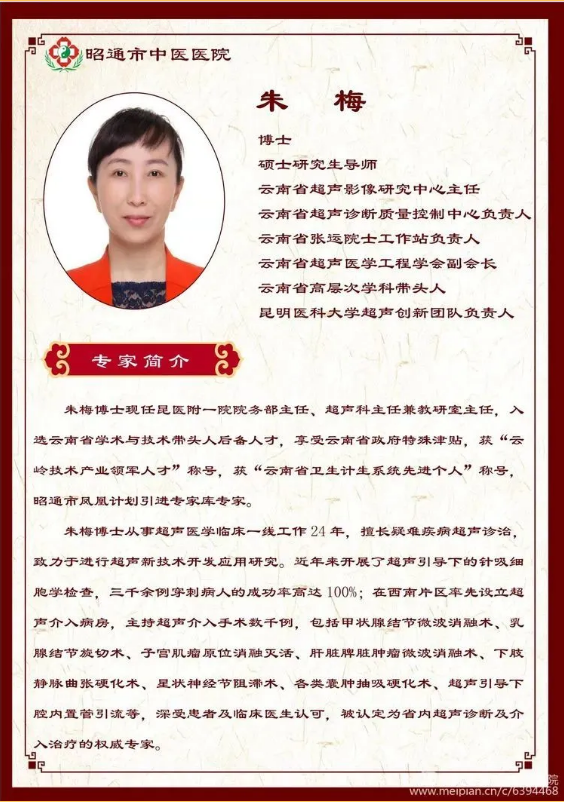 昭通市中医医院
朱 梅
博士
硕士研究生导师
云南省超声影像研究中心主任
云南省超声诊断质量控制中心负责人
云南省张运院士工作站负责人
云南省超声医学工程学会副会长
云南省高层次学科带头人
昆明医科大学超声创新团队负责人
专家简介
朱梅博士现任昆医附一院院务部主任、超声科主任兼教研室主任，入
选云南省学术与技术带头人后备人才，享受云南省政府特殊津贴，获“云
岭技术产业领军人才”称号，获“云南省卫生计生系统先进个人”称号，
昭通市凤凰计划引进专家库专家。
朱梅博士从事超声医学临床一线工作24年，擅长疑难疾病超声诊治，
致力于进行超声新技术开发应用研究。近年来开展了超声引导下的针吸细
胞学检查，三千余例穿刺病人的成功率高达100%；在西南片区率先设立超
声介入病房，主持超声介入手术数千例，包括甲状腺结节微波消融术、乳
腺结节旋切术、子宫肌瘤原位消融灭活、肝脏脾脏肿瘤微波消融术、下肢
静脉曲张硬化术、星状神经节阻滞术、各类囊肿抽吸硬化术、超声引导下
腔内置管引流等，深受患者及临床医生认可，被认定为省内超声诊断及介
入治疗的权威专家。
院
www.meipian.cn/c/6394468